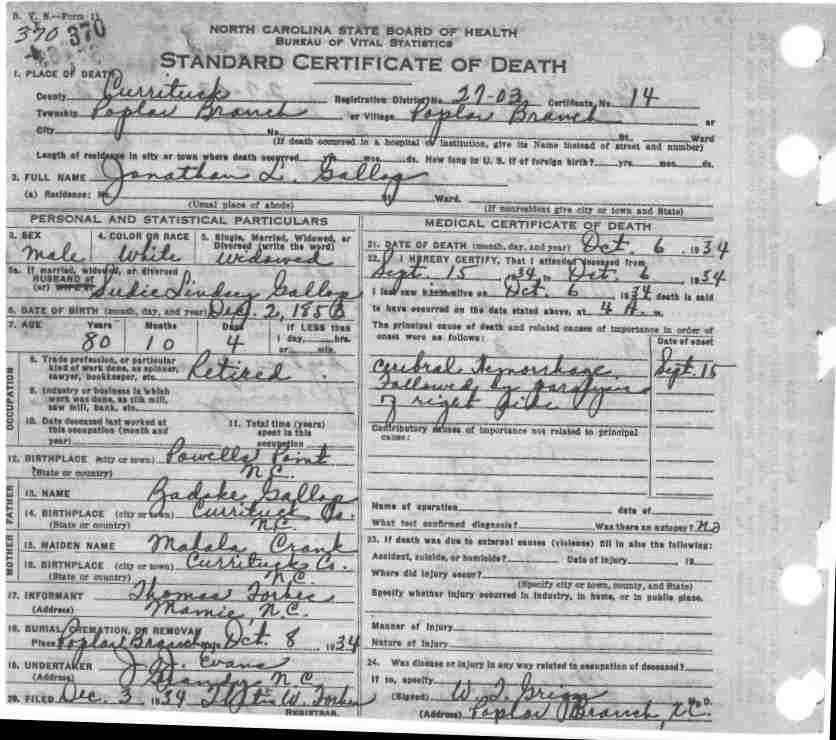 D. V. S.—Form 11
370 370
NORTH CAROLINA STATE BOARD OF HEALTH
BUREAU OF VITAL STATISTICS
STANDARD CERTIFICATE OF DEATH
1. PLACE OF DEATH
County Currituck Registration District No. 27-03 Certificate No. 14
Township Poplar Branch or Village Poplar Branch or
City No. St. Ward
(If death occurred in a hospital or institution, give its Name instead of street and number)
Length of residence in city or town where death occurred yrs. mos. ds. How long in U. S. if of foreign birth? yrs. mos. ds.
2. FULL NAME Jonathan L. Gallop
(a) Residence: No. St. Ward.
(Usual place of abode) (If nonresident give city or town and State)
PERSONAL AND STATISTICAL PARTICULARS
3. SEX 4. COLOR OR RACE 5. Single, Married, Widowed, or
Divorced (write the word)
male White widowed
5a. If married, widowed, or divorced
HUSBAND of
(or) WIFE of Sudie Lindsey Gallop
6. DATE OF BIRTH (month, day, and year) Dec. 2, 185
7. AGE Years Months Days If LESS than
1 day, hrs.
80 10 4 or min.
OCCUPATION
8. Trade profession, or particular
kind of work done, as spinner,
sawyer, bookkeeper, etc. Retired
9. Industry or business in which
work was done, as silk mill,
saw mill, bank, etc.
10. Date deceased last worked at
this occupation (month and
year)
11. Total time (years)
spent in this
occupation
12. BIRTHPLACE (city or town) Powells Point
(State or country) N.C.
FATHER
13. NAME Zadoke Gallop
14. BIRTHPLACE (city or town) Currituck Co.
(State or country) N.C.
MOTHER
15. MAIDEN NAME Mahala Crank
16. BIRTHPLACE (city or town) Currituck Co.
(State or country) N.C.
17. INFORMANT Thomas Forbes
(Address) Mamie, N.C.
18. BURIAL, CREMATION, OR REMOVAL
Place Poplar Branch Date Oct. 8 1934
19. UNDERTAKER J. J. Evans
(Address) Grandy N.C.
20. FILED Dec. 3, 1934 W. Forbes
REGISTRAR.
MEDICAL CERTIFICATE OF DEATH
21. DATE OF DEATH (month, day, and year) Oct. 6 1934
22. I HEREBY CERTIFY, That I attended deceased from
Sept. 15 1934 to Oct. 6 1934
I last saw him alive on Oct. 6 1934 death is said
to have occurred on the date stated above, at 4 A. m.
The principal cause of death and related causes of importance in order of
onset were as follows:
Date of onset
Cerebral Hemorrhage Sept. 15
followed by paralysis
of right side
Contributory causes of importance not related to principal
cause:
Name of operation date of
What test confirmed diagnosis? Was there an autopsy? no
23. If death was due to external causes (violence) fill in also the following:
Accident, suicide, or homicide? Date of injury 19
Where did injury occur?
(Specify city or town, county, and State)
Specify whether injury occurred in industry, in home, or in public place.
Manner of injury
Nature of injury
24. Was disease or injury in any way related to occupation of deceased?
If so, specify
(Signed) W. T. Griggs M. D.
(Address) Poplar Branch, N.C.